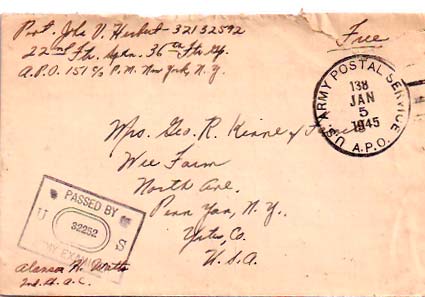 Pvt. John V. Herbert 32132592
22nd Ftr. Sqdn. 36th Ftr. Gp.
A.P.O. 151 c/o P.M. New York, N.Y.
Free
U.S. ARMY POSTAL SERVICE
138
JAN
5
1945
A.P.O.
Mrs. Geo. R. Kinne & Family
Wee Farm
North Ave.
Penn Yan, N.Y.
Yates, Co.
U.S.A.
PASSED BY
U S
32252
ARMY EXAMINER
H. Watts
2nd. Lt. A.C.